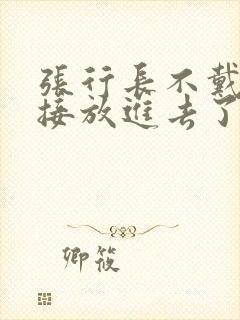 張行長不戴
接放進去了
卿筱